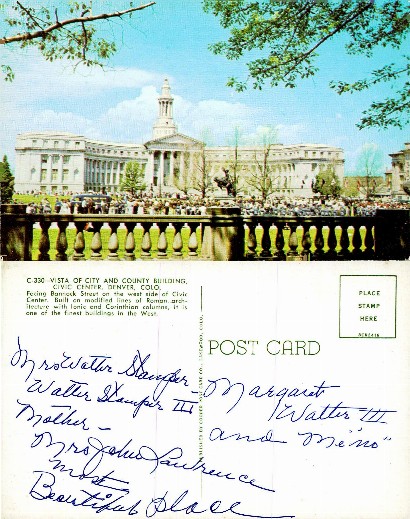 C-330 VISTA OF CITY AND COUNTY BUILDING,
CIVIC CENTER, DENVER, COLO.
Facing Bannock Street on the west side of Civic
Center. Built on modified lines of Roman arch-
itecture with Ionic and Corinthian columns, it is
one of the finest buildings in the West.
PLACE
STAMP
HERE
POST CARD
Mrs Walter Stamper
Walter Stamper III
Mother -
Mrs John Lawrence
most
Beautiful Place
Margaret
Walter III
and "Meno"